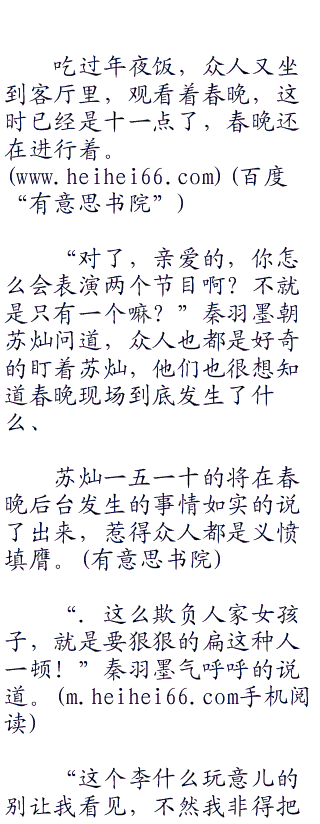 吃过年夜饭，众人又坐
到客厅里，观看着春晚，这
时已经是十一点了，春晚还
在进行着。
(www.heihei66.com)(百度
“有意思书院”)
“对了，亲爱的，你怎
么会表演两个节目啊？不就
是只有一个嘛？”秦羽墨朝
苏灿问道，众人也都是好奇
的盯着苏灿，他们也很想知
道春晚现场到底发生了什
么、
苏灿一五一十的将在春
晚后台发生的事情如实的说
了出来，惹得众人都是义愤
填膺。(有意思书院)
“．这么欺负人家女孩
子，就是要狠狠的扁这种人
一顿！”秦羽墨气呼呼的说
道。(m.heihei66.com手机阅
读)
“这个李什么玩意儿的
别让我看见，不然我非得把